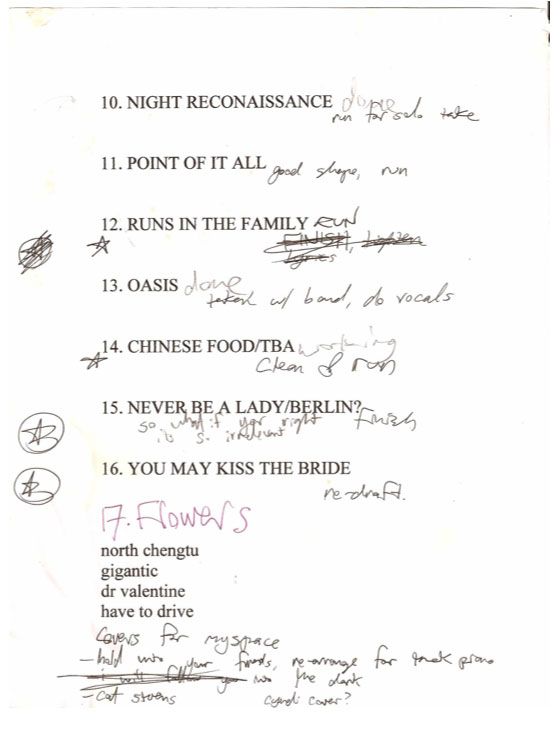 10. NIGHT RECONAISSANCE done
run for solo take
11. POINT OF IT ALL good shape, run
12. RUNS IN THE FAMILY RUN
FINISH, tighten
lyrics
13. OASIS done
taken w/ band, do vocals
14. CHINESE FOOD/TBA working
Clean & run
15. NEVER BE A LADY/BERLIN? Finish
so what if your right
it's irrelevant
16. YOU MAY KISS THE BRIDE
re-draft.
17. Flowers
north chengtu
gigantic
dr valentine
have to drive
Covers for myspace
- hold your friends, re-arrange for piano
- i will follow you into the dark
- cat stevens cover?